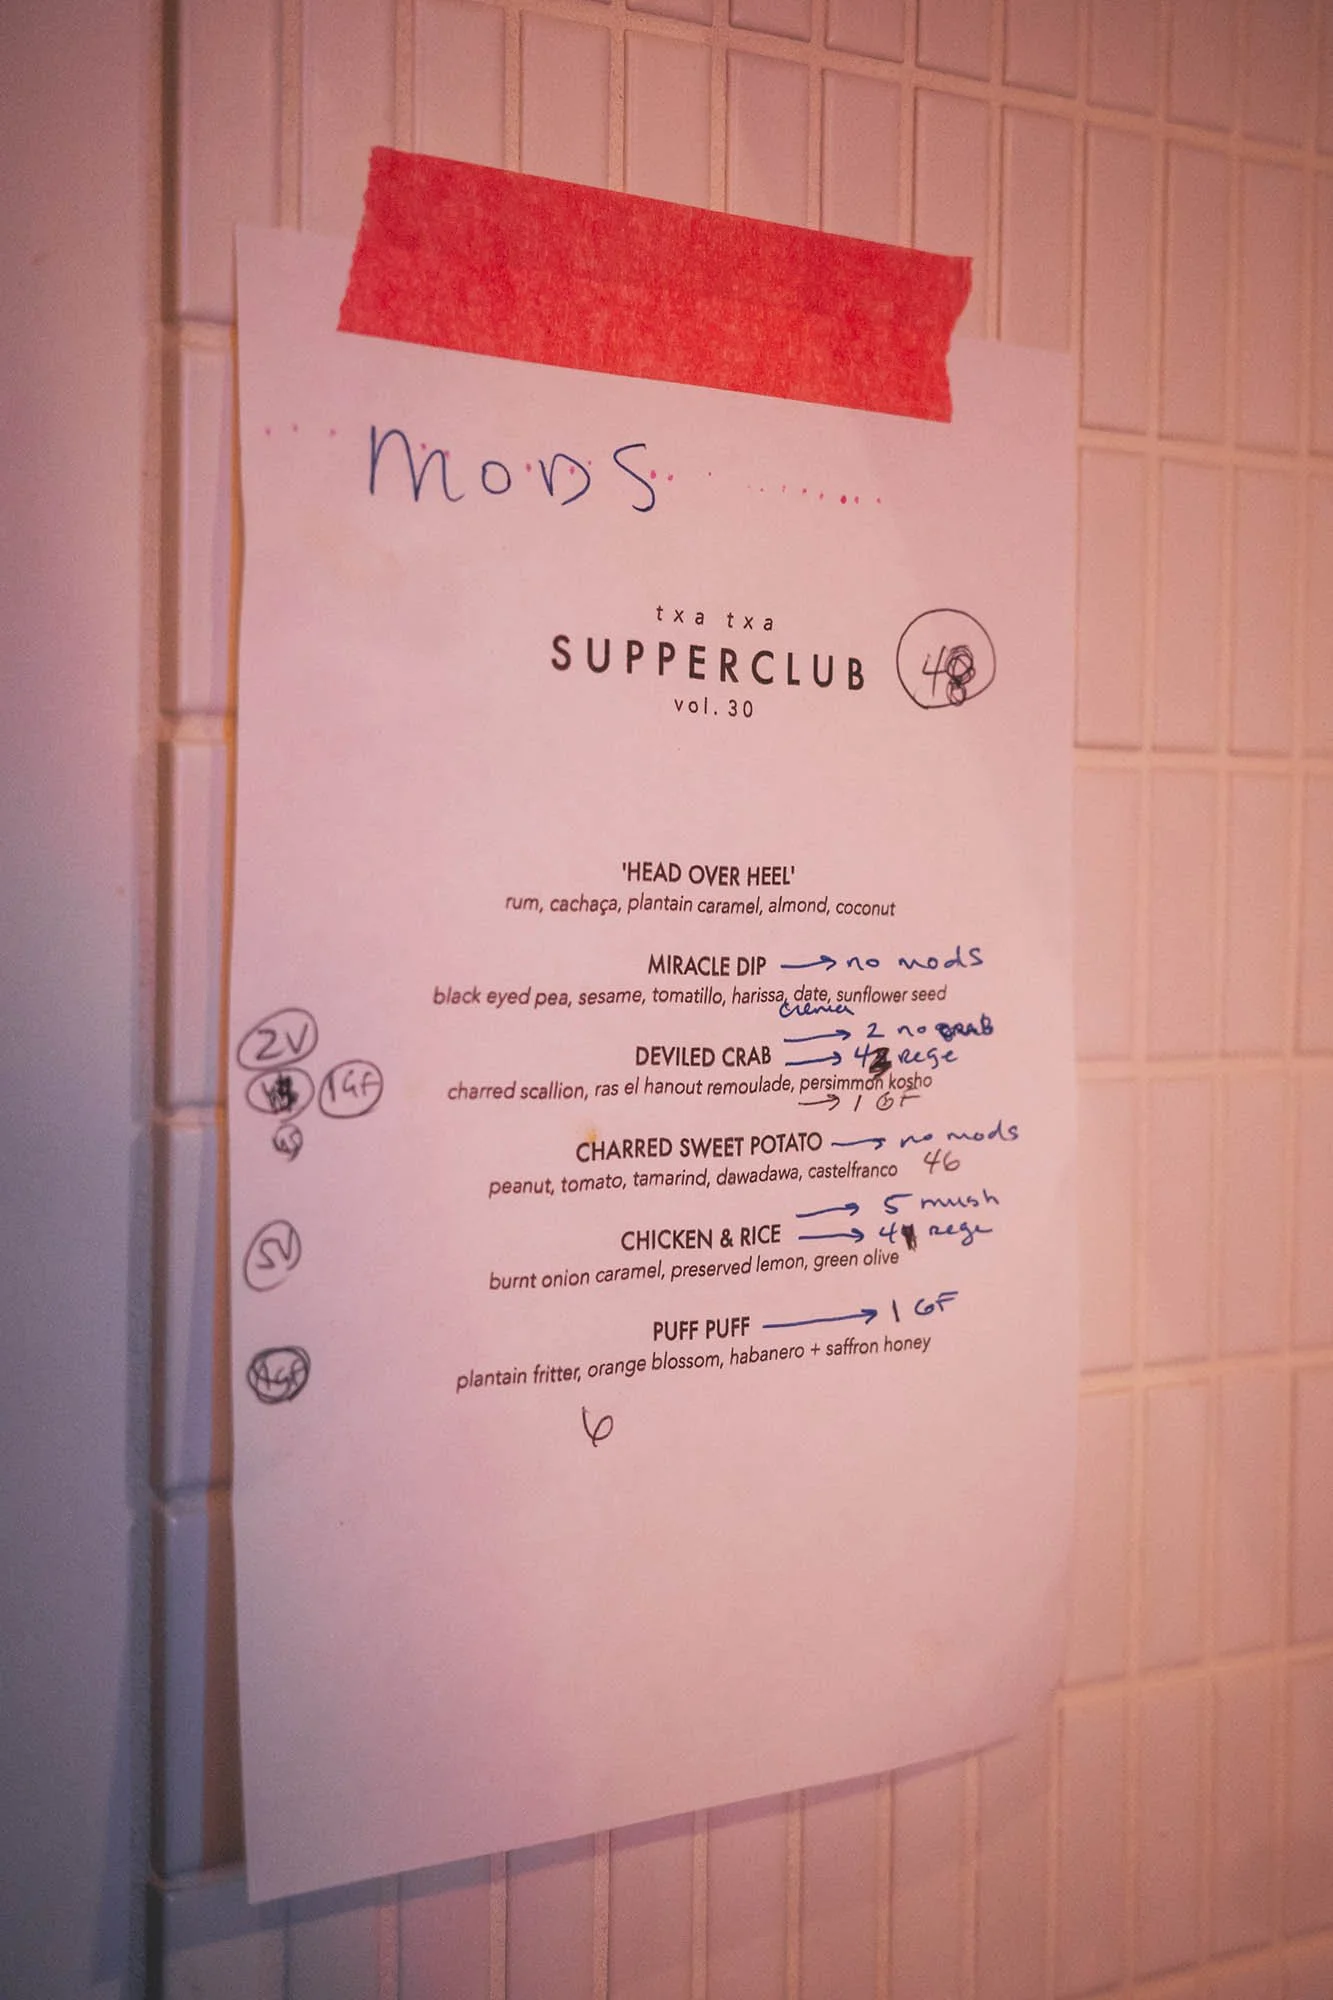 MODS
txa txa
SUPPERCLUB
vol. 30
'HEAD OVER HEEL'
rum, cachaça, plantain caramel, almond, coconut
MIRACLE DIP → no mods
black eyed pea, sesame, tomatillo, harissa, date, sunflower seed
2V
→ 2 no CRAB
DEVILED CRAB → 4 rege
1GF
charred scallion, ras el hanout remoulade, persimmon kosho
→ 1 GF
CHARRED SWEET POTATO → no mods
peanut, tomato, tamarind, dawadawa, castelfranco 46
→ 5 mush
5V
CHICKEN & RICE → 4 rege
burnt onion caramel, preserved lemon, green olive
PUFF PUFF → 1 GF
plantain fritter, orange blossom, habanero + saffron honey
6